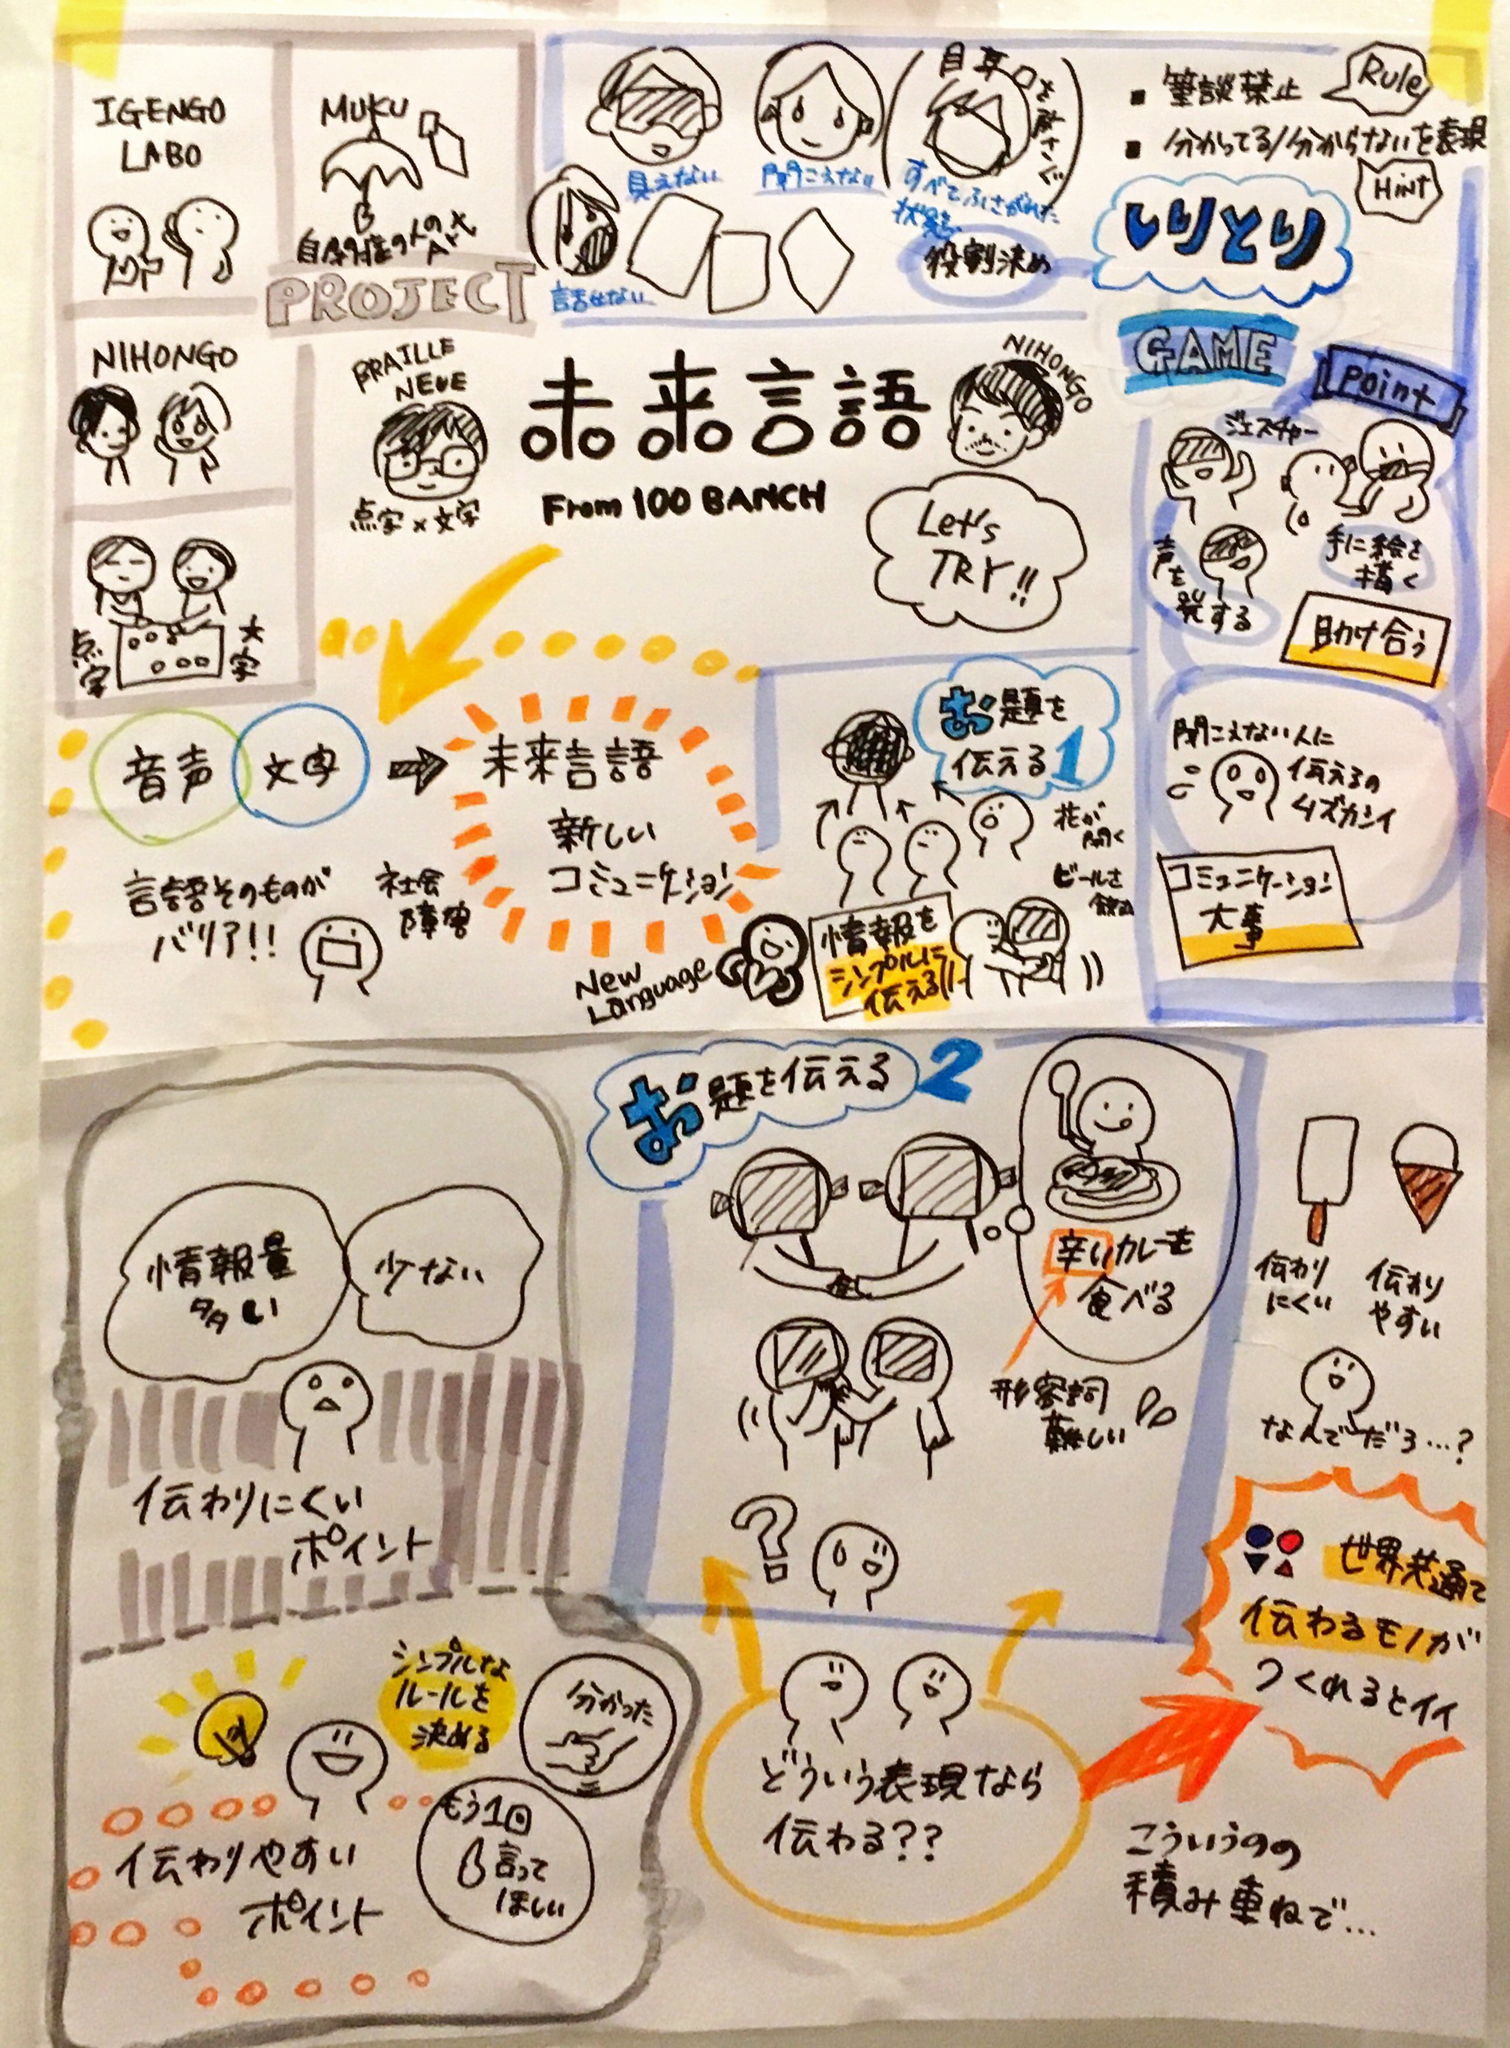 IGENGO
LABO
MUKU
自閉症の人のArt
PROJECT
NIHONGO
BRAILLE
NEUE
点字×文字
点字
大字
未来言語
From 100 BANCH
NIHONGO
Let's
TRY!!
見えない
聞こえない
話せない
目耳口を
すべてふさがれた
状態
役割決め
筆談禁止
Rule
分かってる/分からないを表現
Hint
しりとり
GAME
Point
ジェスチャー
声を
発する
手に絵を
描く
助け合う
聞こえない人に
伝えるの
ムズカシイ
コミュニケーション
大事
音声
文字
未来言語
新しい
コミュニケーション
言語そのものが
バリア!!
社会
障害
New
Language
お題を
伝える1
花が
開く
ビールを
飲む
情報を
シンプルに
伝える!!
お題を伝える2
辛いカレーを
食べる
形容詞
難しい
伝わり
にくい
伝わり
やすい
なんでだろ…?
情報量
多い
少ない
伝わりにくい
ポイント
シンプルな
ルールを
決める
分かった
もう1回
言って
ほしい
伝わりやすい
ポイント
?
どういう表現なら
伝わる??
世界共通で
伝わるモノが
つくれるとイイ
こういうのの
積み重ねで…